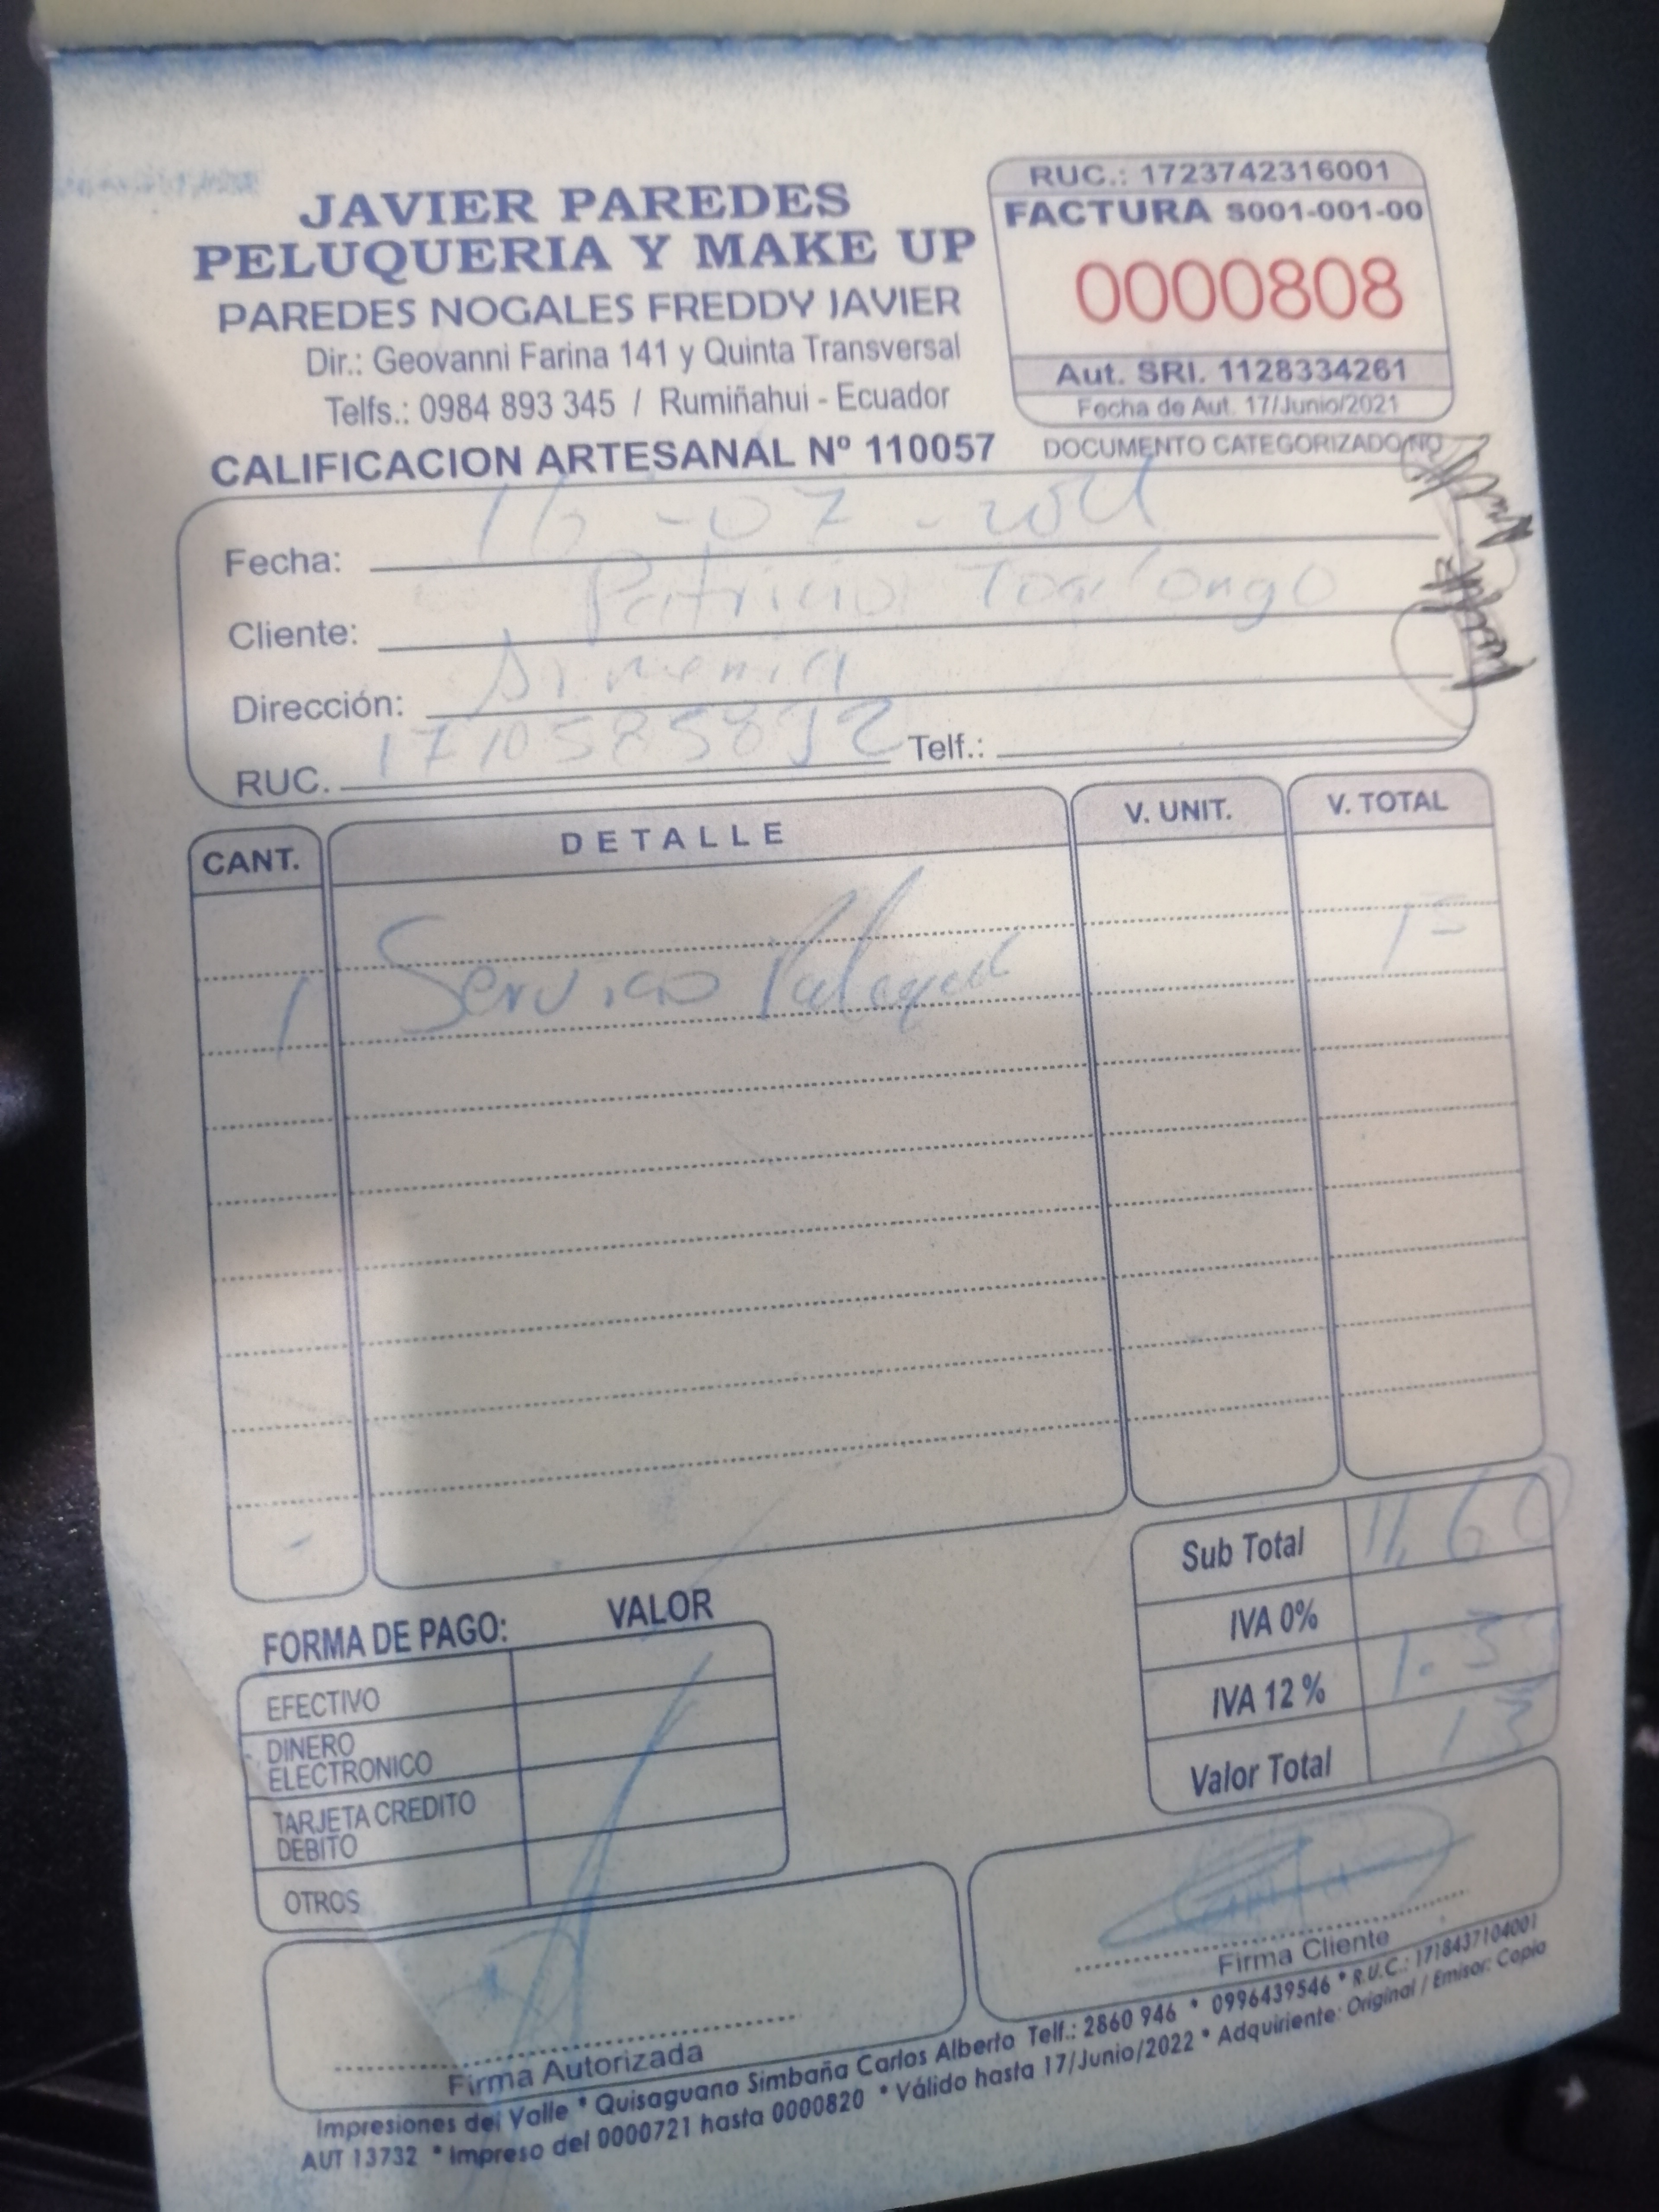 JAVIER PAREDES
PELUQUERIA Y MAKE UP
PAREDES NOGALES FREDDY JAVIER
Dir.: Geovanni Farina 141 y Quinta Transversal
Telfs.: 0984 893 345 / Rumiñahui - Ecuador
CALIFICACION ARTESANAL Nº 110057
RUC.: 1723742316001
FACTURA S001-001-00
0000808
Aut. SRI. 1128334261
Fecha de Aut. 17/Junio/2021
DOCUMENTO CATEGORIZADO NO
Fecha: 16-07-2021
Cliente: Patricio Toalongo
Dirección: Armenia
RUC. 1710585892 Telf.:
CANT. DETALLE V. UNIT. V. TOTAL
1 Servicio
Sub Total 11,60
IVA 0%
IVA 12 % 1.3
Valor Total 13
FORMA DE PAGO: VALOR
EFECTIVO
DINERO ELECTRONICO
TARJETA CREDITO DEBITO
OTROS
Firma Autorizada
Firma Cliente
Impresiones del Valle * Quisaguano Simbaña Carlos Alberto Telf.: 2860 946 * 0996439546 * R.U.C.: 1718437104001
AUT 13732 * Impreso del 0000721 hasta 0000820 * Válido hasta 17/Junio/2022 * Adquiriente: Original / Emisor: Copia